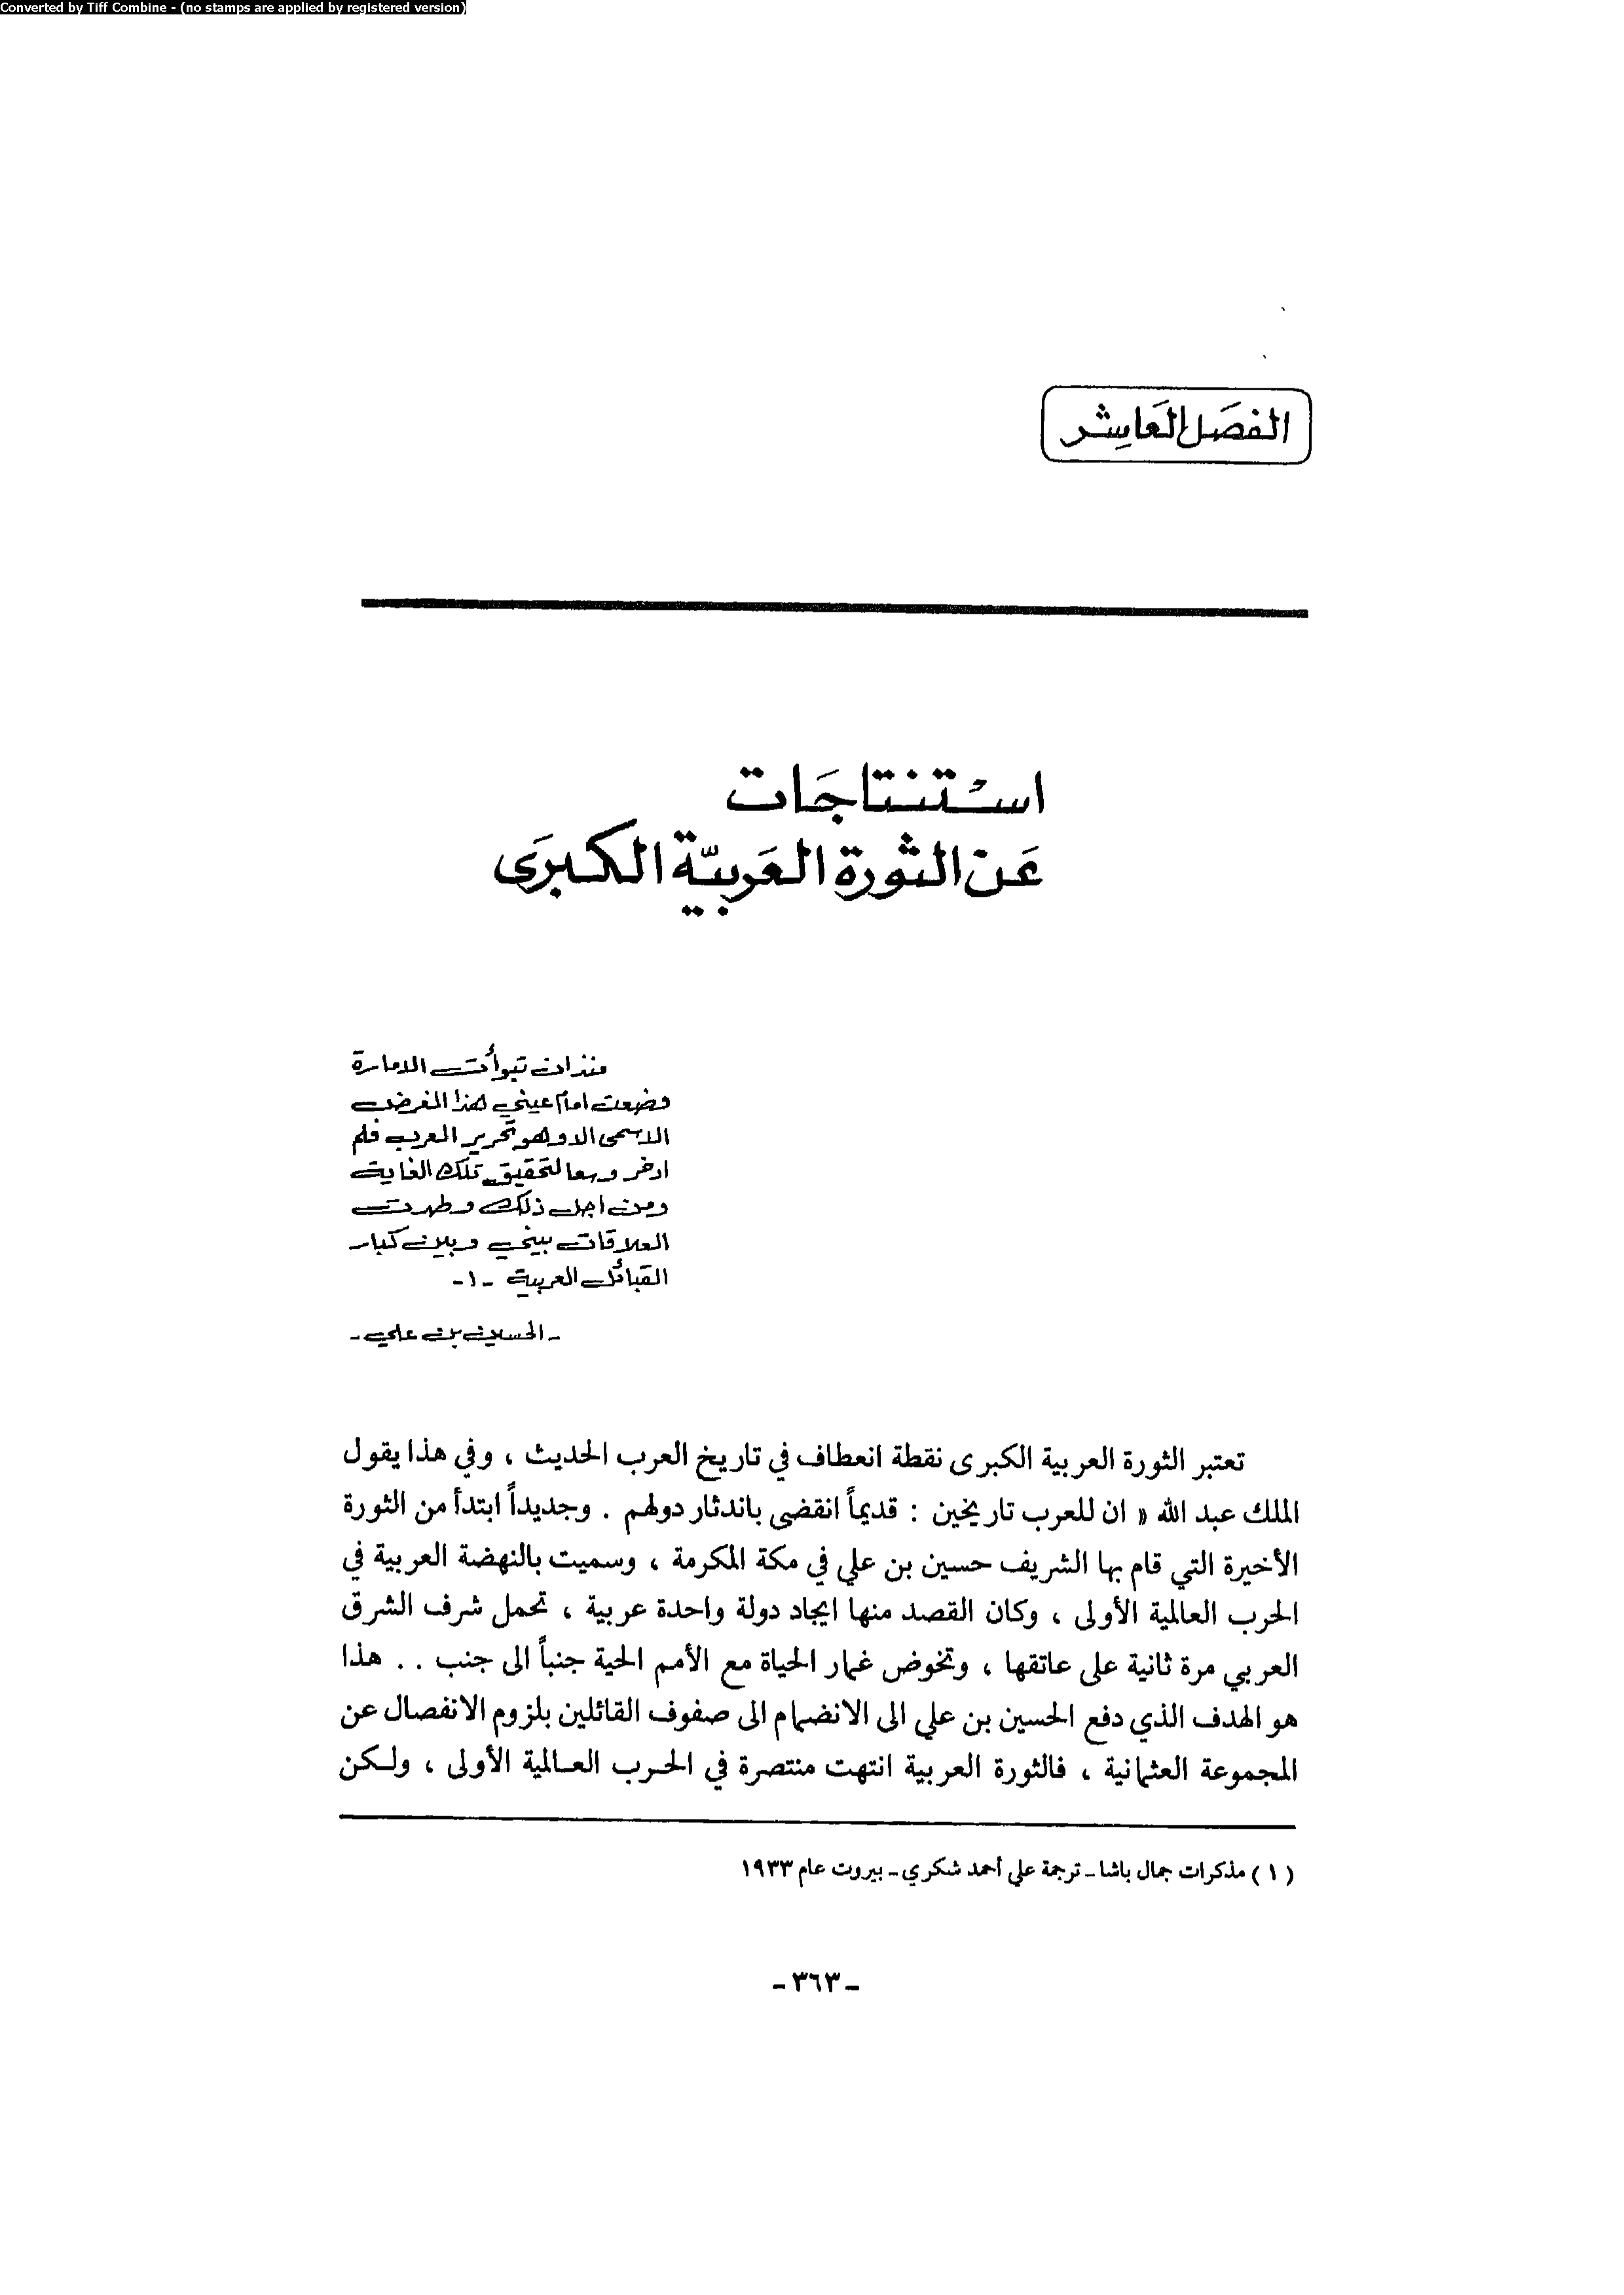 Converted by Tiff Combine - (no stamps are applied by registered version)
الفصَل العَاشِر
استْنتاجَات
عَن الثورة العَربيّة الكبرَى
منذ ان تبوأت الامارة
وضعت امام عيني هذا الغرض
الاسمى الا وهو تحرير العرب فلم
ادخر وسعا لتحقيق تلك الغاية
ومن اجل ذلك وطدت
العلاقات بيني وبين كبار
القبائل العربية -١-
- الحسين بن علي -
تعتبر الثورة العربية الكبرى نقطة انعطاف في تاريخ العرب الحديث ، وفي هذا يقول
الملك عبد الله « ان للعرب تاريخين : قديماً انقضى باندثار دولهم . وجديداً ابتدأ من الثورة
الأخيرة التي قام بها الشريف حسين بن علي في مكة المكرمة ، وسميت بالنهضة العربية في
الحرب العالمية الأولى ، وكان القصد منها ايجاد دولة واحدة عربية ، تحمل شرف الشرق
العربي مرة ثانية على عاتقها ، وتخوض غمار الحياة مع الأمم الحية جنباً الى جنب . . هذا
هو الهدف الذي دفع الحسين بن علي الى الانضمام الى صفوف القائلين بلزوم الانفصال عن
المجموعة العثمانية ، فالثورة العربية انتهت منتصرة في الحرب العالمية الأولى ، ولكن
( ١ ) مذكرات جمال باشا - ترجمة علي أحمد شكري - بيروت عام ١٩٣٣
- ٣٦٣ -